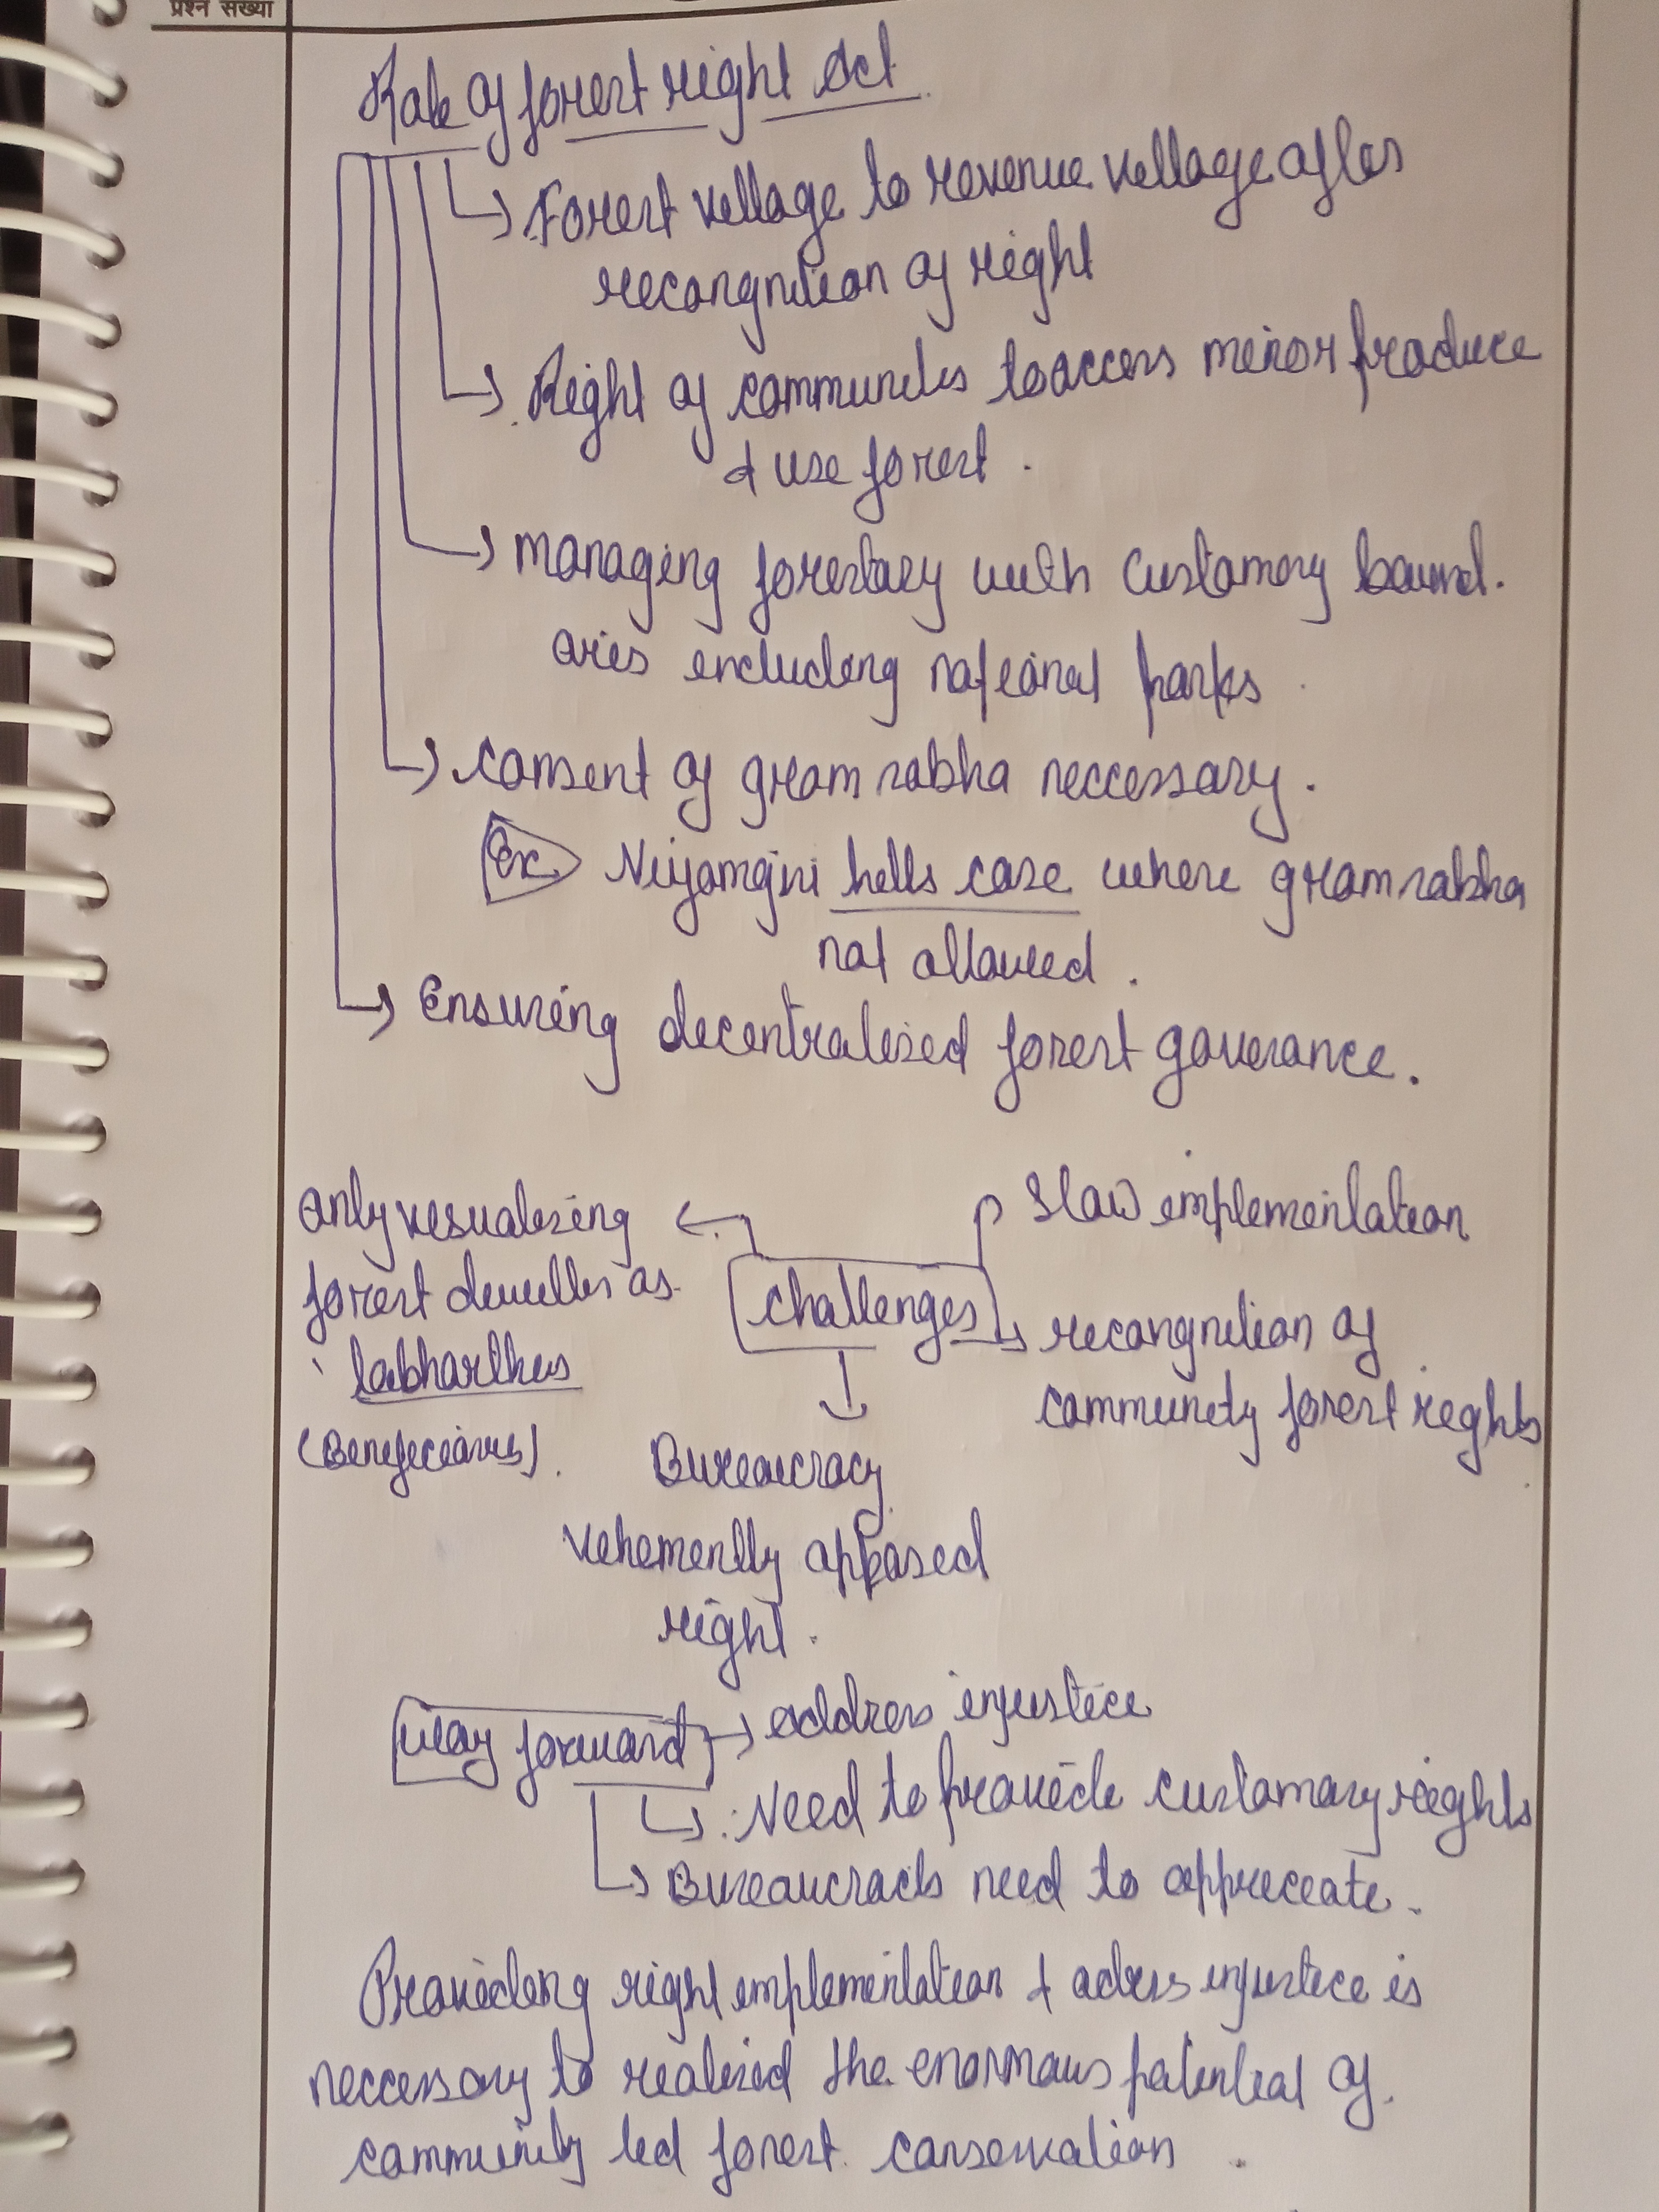 प्रश्न संख्या
Role of forest right Act
Forest village to revenue village after
recongnition of right
Right of communities to access minor produce
& use forest.
Managing forestary with customary bound-
aries including national parks.
Consent of gram sabha neccessary.
Ex Niyamgiri hills case where gram sabha
not allowed.
Ensuring decentralised forest goverance.
Only visualising
forest dwellers as
labharthis
(Beneficiaries).
Challenges
Slow implementation
recongnition of
community forest rights
Bureaucracy
vehemently opposed
right.
Way forward → address injustice
Need to provide customary rights
Bureaucrats need to appreciate.
Providing right implementation & adress injustice is
neccessary to realised the enormous potential of
community led forest conservation.